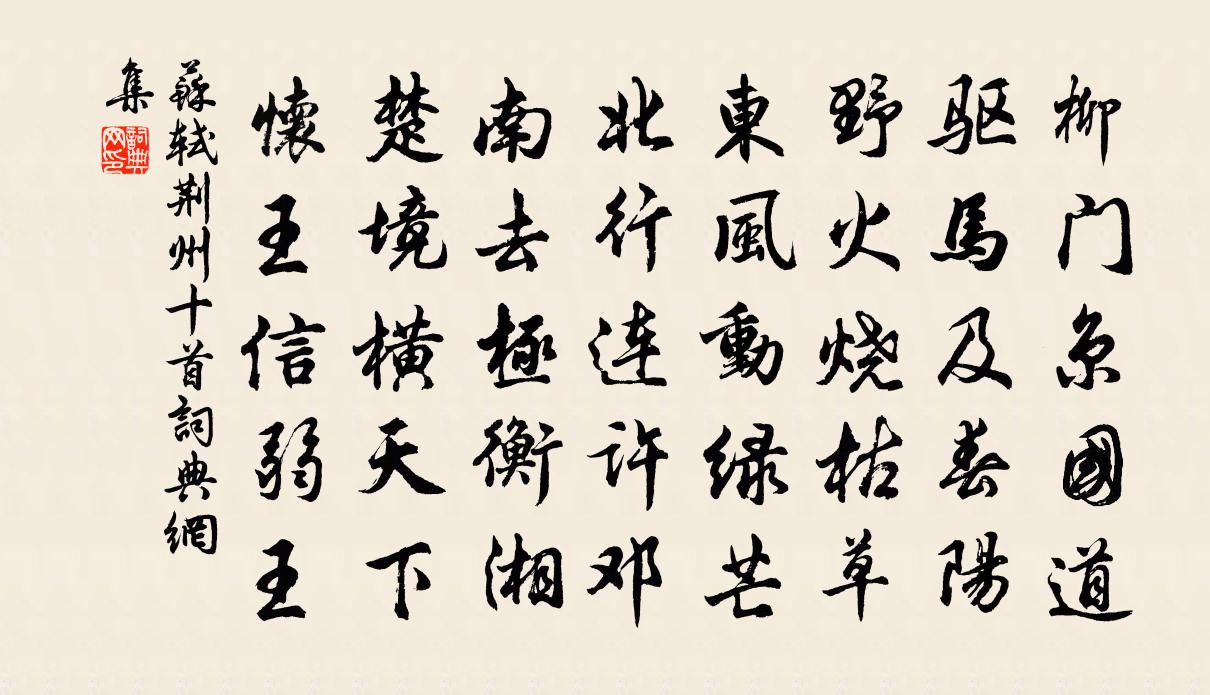 柳门京國道
驱馬及春陽
野火烧枯草
東風動绿芒
北行连许邓
南去極衡湘
楚境横天下
懷王信弱王
蘇轼荆州十首詞典網
集
詞典
网印